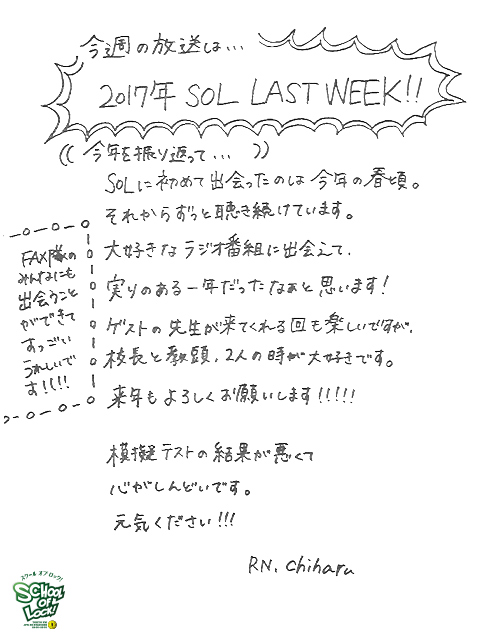 今週の放送は...
2017年 SOL LAST WEEK!!
(( 今年を振り返って... ))
SOLに初めて出会ったのは 今年の春頃。
それからずっと聴き続けています。
大好きなラジオ番組に出会えて、
実りのある一年だったなぁと思います!
ゲストの先生が来てくれる回も楽しいですが、
校長と教頭、2人の時が大好きです。
来年もよろしくお願いします!!!!!
FAX隊の
みんなにも
出会うこと
ができて
すっごい
うれしいで
す!!!!
模擬テストの結果が悪くて
心がしんどいです。
元気ください!!!
RN. Chiharu
スクール オブ ロック!
SCHOOL
OF
LOCK!